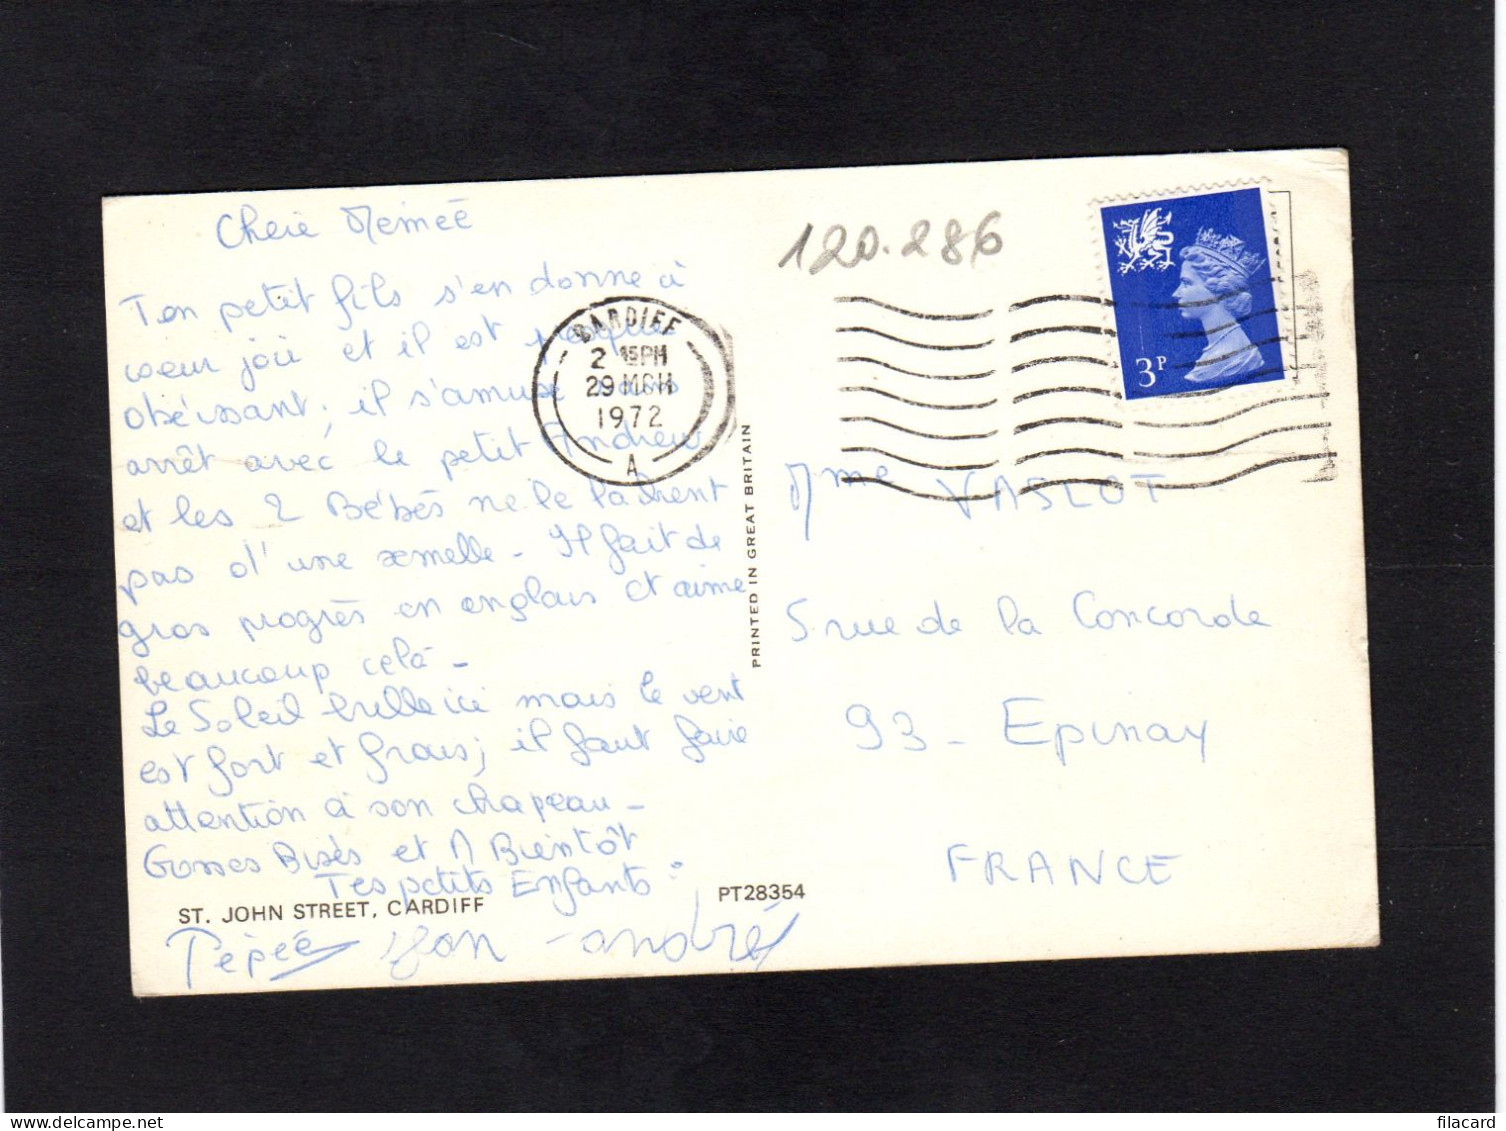 Cheie Meimée
Ton petit fils s'en donne à
coeur joie et il est presque
obéissant; il s'amuse sans
arrêt avec le petit Andrew
et les 2 Bébés ne le lachent
pas d'une semelle - Il fait de
gros progrès en anglais et aime
beaucoup celà -
Le Soleil brille ici mais le vent
est fort et frais; il faut faire
attention à son chapeau -
Grosses Bisés et A Bientôt
Tes petits Enfants
ST. JOHN STREET, CARDIFF
PT28354
Pépée Jean-andré
PRINTED IN GREAT BRITAIN
120.286
CARDIFF
2 15PM
29 MCH
1972
A
3P
Mme VASLOT
5 rue de la Concorde
93 - Epinay
FRANCE
filacard